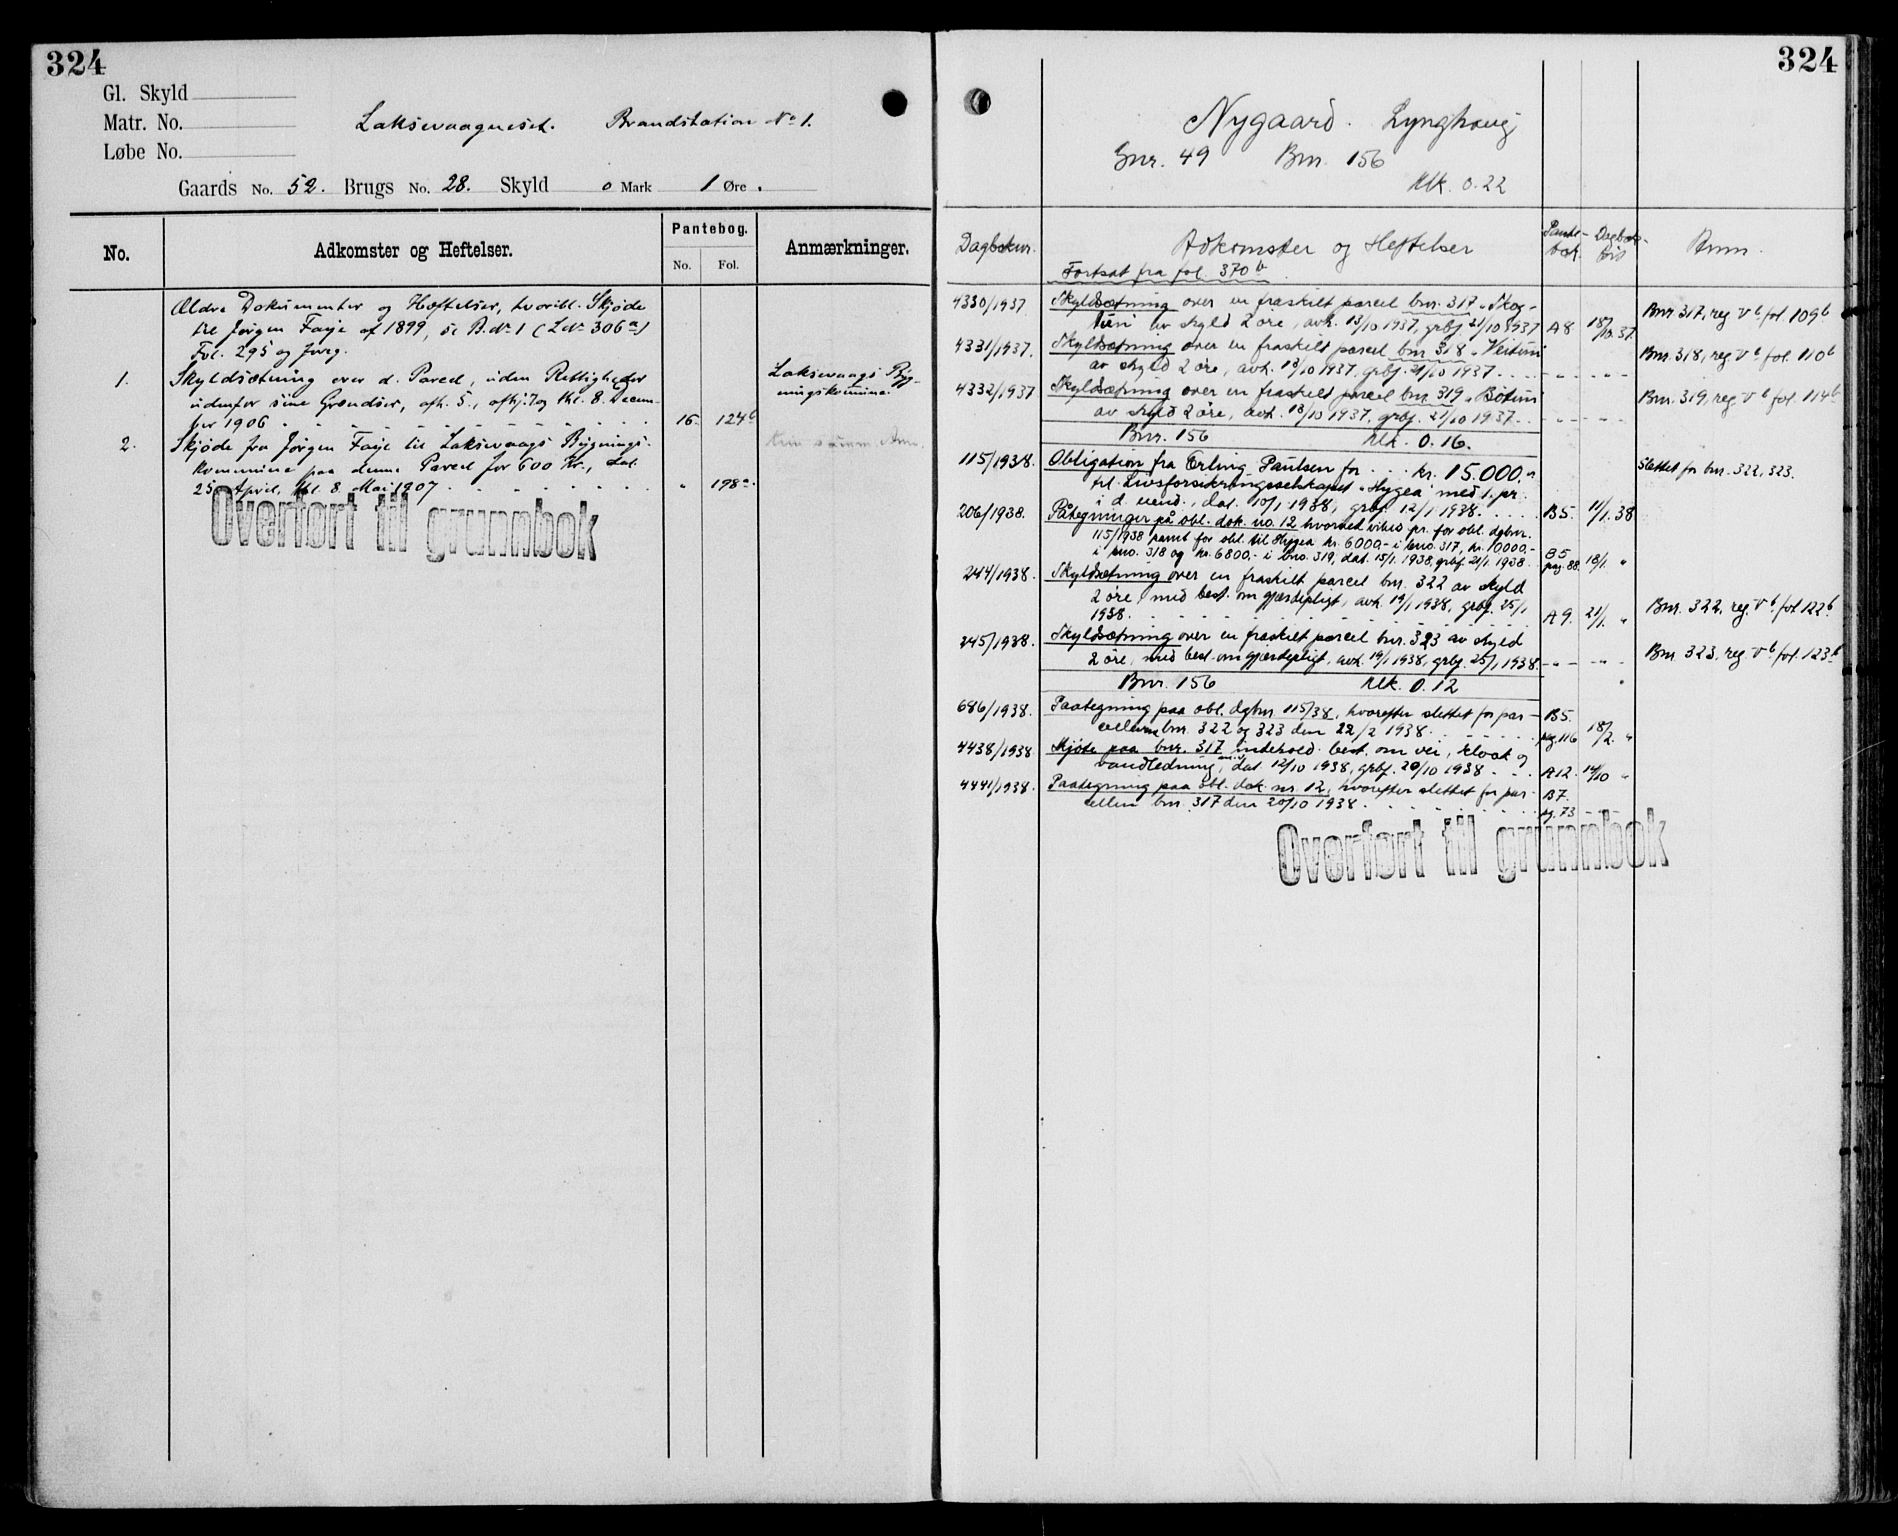 324
Gl. Skyld
Matr. No.
Løbe No.
Laksevaagneset. Brandstation No 1.
Gaards No. 52. Brugs No. 28. Skyld 0 Mark 1 Øre.
No. Adkomster og Heftelser. Pantebog. No. Fol. Anmærkninger.
Ældre Dokumenter og Hæftelser, hvoribl. Skjøde
til Jørgen Faye af 1899, se B.No 1 (L.No 306a)
Fol. 295 og fvrg.
1. Skyldsætning over d. Parcel, uden Rettigheder Laksevaags Byg-
udenfor sine Grændser, afh. 5., afhj. Tog thl. 8. Decem- ningskommune
ber 1906 16 124b
2. Skjøde fra Jørgen Faye til Laksevaags Bygnings-
kommune paa denne Parcel for 600 Kr., dat.
25 April, thl. 8 Mai 1907 " 198a
Overført til grunnbok
324
Nygaard. Lynghaug
Gnr. 49 Bnr. 156
Mk. 0.22
Dagboknr. Adkomster og Heftelser Pante-bok Dagbok- Anm.
Fortsat fra fol. 370b
4330/1937 Skyldsætning over en fraskilt parcel bnr. 317 "Skog- Bnr. 317, reg. Vb fol 109b
tun" av skyld 2 øre, avh. 13/10 1937, grbf. 21/10 1937 A8 18/10 37.
4331/1937. Skyldsætning over en fraskilt parcel bnr 318 "Veitun" Bnr. 318, reg. Vb fol. 110b
av skyld 2 øre, avh. 13/10 1937, grbf. 21/10 1937 - " - - " -
4332/1937 Skyldsætning over en fraskilt parcel bnr 319 "Bøtun" Bnr. 319, reg. Vb fol. 114b
av skyld 2 øre, avh. 13/10 1937, grbf. 21/10 1937 - " - - " -
Bnr. 156 Mk. 0.16.
115/1938. Obligation fra Erling Paulsen for kr. 15.000.- Slettet for bnr. 322, 323.
til Livsforsikringsselskapet "Hygea" med 1. pr.
i d. eiend., dat. 10/1 1938, grbf. 12/1 1938. B5. 11/1. 38
206/1938. Påtegninger på obl. dok. no. 12 hvorved vikes pr. for obl. dgbnr.
115/1938 samt for obl. til Hygea kr. 6000.- i bno. 317, kr. 10000.-
i bno. 318 og kr. 6800.- i bno. 319, dat. 15/1. 1938, grbf. 21/1 1938. B5 pag. 88. 18/1. "
244/1938. Skyldsætning over en fraskilt parcel bnr. 322 av skyld
2 øre, med best. om gjærdepligt, avh. 19/1 1938, grbf. 25/1 Bnr. 322, reg. Vb. fol 122b
1938. A 9. 21/1. "
245/1938. Skyldsætning over en fraskilt parcel bnr. 323 av skyld
2 øre, med best. om gjærdepligt, avh. 19/1 1938, grbf. 25/1 1938. - " - - " - Bnr. 323, reg. Vb fol. 123b
Bnr. 156 Mk. 0.12
686/1938. Paategning paa obl. dgbnr 115/38, hvorefter slettet for par- B5.
cellerne bnr. 322 og 323 den 22/2 1938. pg. 116 18/2. "
4438/1938 Skjøte paa bnr. 317 indehold. best. om vei, kloak og
vandledning, dat. 12/10 1938, grbf. 20/10 1938 A12. 14/10 "
4441/1938. Paategning paa obl. dok. nr. 12, hvorefter slettet for par- B7.
cellen bnr. 317 den 20/10 1938 pg. 73 - " -
Overført til grunnbok